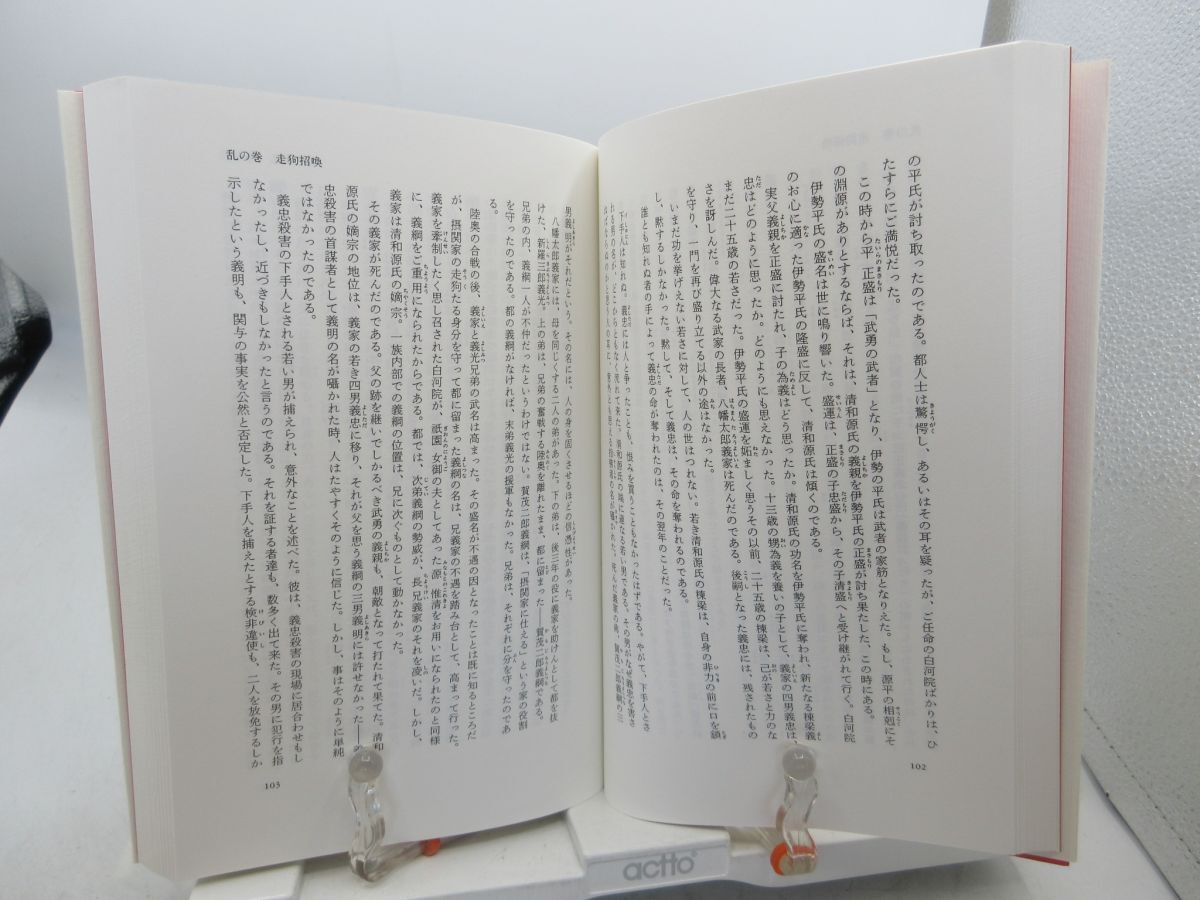 の平氏が討ち取ったのである。都人士は驚愕し、あるいはその耳を疑ったが、ご任命の白河院ばかりは、ひ
たすらにご満悦だった。
この時から平正盛は「武勇の武者」となり、伊勢の平氏は武者の家筋となりえた。もし、源平の相剋にそ
の淵源がありとするならば、それは、清和源氏の義親を伊勢平氏の正盛が討ち果たした、この時にある。
伊勢平氏の盛名は世に鳴り響いた。盛運は、正盛の子忠盛から、その子清盛へと受け継がれて行く。白河院
のお心に適った伊勢平氏の隆盛に反して、清和源氏は傾くのである。
実父義親を正盛に討たれ、子の為義はどう思ったか。清和源氏の功名を伊勢平氏に奪われ、新たなる棟梁義
忠はどのように思ったか。どのようにも思えなかった。十三歳の甥為義を養いの子として、義家の四男義忠は
まだ二十五歳の若さだった。伊勢平氏の盛運を妬ましく思うその以前、二十五歳の棟梁は、己が若さと力のな
さを訝しんだ。偉大なる武家の長者、八幡太郎義家は死んだのである。後嗣となった義忠には、残されたもの
を守り、一門を再び盛り立てる以外の途はなかった。
いまだ功を挙げえない若さに対して、人の世はつれない。若き清和源氏の棟梁は、自身の非力の前に口を鎖
し、黙するしかなかった。黙して、そして義忠は、その命を奪われるのである。
誰とも知れぬ者の手によって義忠の命が奪われたのは、その翌年のことだった。
下手人は知れぬ。義忠には人と争ったことも、恨みを買うこともなかったはずである。やがて、下手人とさ
102
乱の巻 走狗招喚
男義明がそれだという。その名には、人の身を固くさせるほどの信憑性があった。
八幡太郎義家には、母を同じくする二人の弟があった。下の弟は、後三年の役に義家を助けんとして都を抜
けた、新羅三郎義光。上の弟は、兄弟の奮戦する陸奥を離れたまま、都に留まった――賀茂二郎義綱である。
兄弟の内、義綱一人が不仲だったというわけではない。賀茂二郎義綱は、「摂関家に仕える」という家の役割
を守ったのである。都の義綱がなければ、末弟義光の援軍もなかった。兄弟は、それぞれに分を守ったのであ
る。
陸奥の合戦の後、義家と義光兄弟の武名は高まった。その盛名が不遇の因となったことは既に知るところだ
が、摂関家の走狗たる身分を守って都に留まった義綱の名は、兄義家の不遇を踏み台として、高まって行った。
義家を牽制したく思し召された白河院が、祇園女御の夫としてあった源惟清をお用いになられたのと同様
に、義綱をご重用になられたからである。都では、次弟義綱の勢威が、長兄義家のそれを凌いだ。しかし、
義家は清和源氏の嫡宗。一族内部での義綱の位置は、兄に次ぐものとして動かなかった。
その義家が死んだのである。父の跡を継いでしかるべき武勇の義親も、朝敵となって打たれて果てた。清和
源氏の嫡宗の地位は、義家の若き四男義忠に移り、それが父を思う義綱の三男義明には許せなかった――
忠殺害の首謀者として義明の名が囁かれた時、人はたやすくそのように信じた。しかし、事はそのように単純
ではなかったのである。
義忠殺害の下手人とされる若い男が捕えられ、意外なことを述べた。彼は、義忠殺害の現場に居合わせもし
なかったし、近づきもしなかったと言うのである。それを証する者達も、数多く出て来た。その男に犯行を指
示したという義明も、関与の事実を公然と否定した。下手人を捕えたとする検非違使も、二人を放免するしか
103
actto